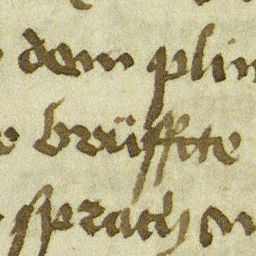 dem plin
brüffte
sprach